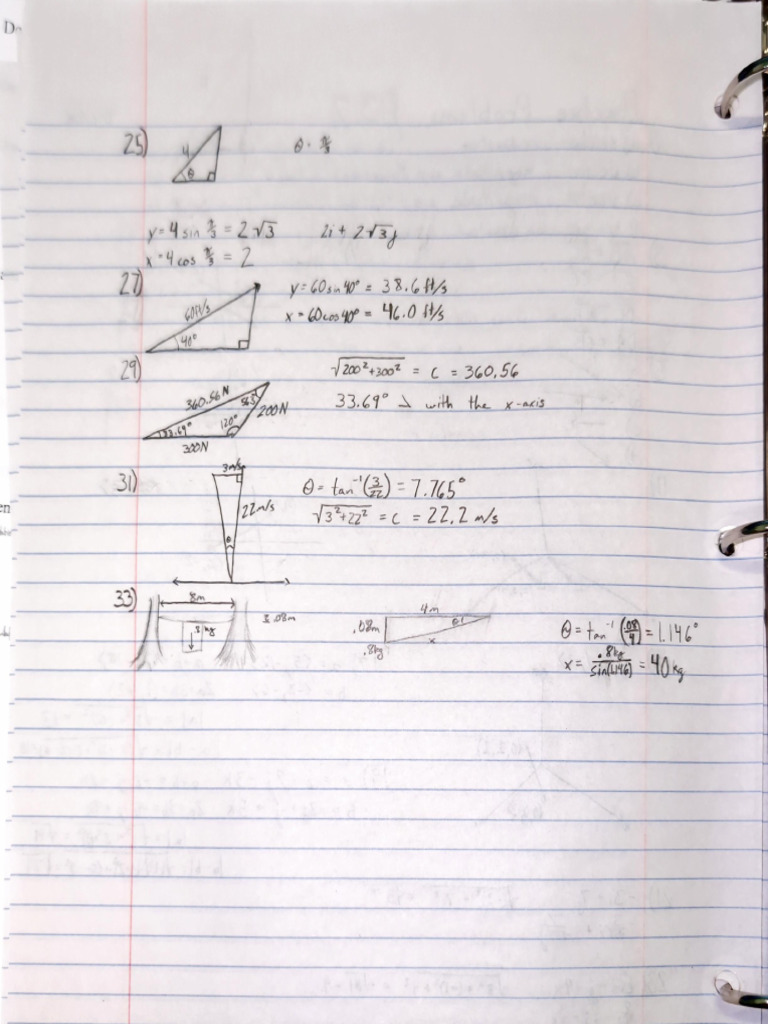 25)
4
θ
θ = π/3
y = 4 sin π/3 = 2√3
2i + 2√3j
x = 4 cos π/3 = 2
27)
60ft/s
40°
y = 60 sin 40° = 38.6 ft/s
x = 60 cos 40° = 46.0 ft/s
29)
360.56 N
33.69°
120°
200N
300N
√200²+300² = c = 360.56
33.69° with the x-axis
31)
3m/s
22m/s
θ
θ = tan⁻¹(3/22) = 7.765°
√3²+22² = c = 22.2 m/s
33)
8m
kg
.08m
4m
θ
.08m
x
.8kg
θ = tan⁻¹(.08/4) = 1.146°
x = .8kg/sin(1.146) = 40kg